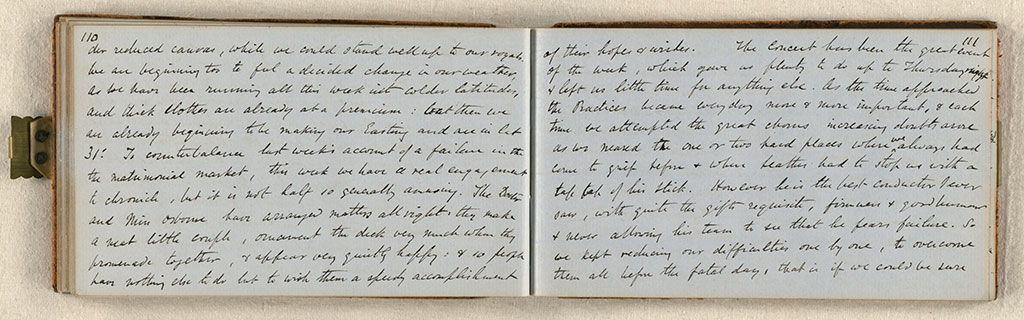 110
der reduced canvas, while we could stand well up to our royals.
We are beginning too to feel a decided change in our weather,
as we have been running all this week into colder latitudes,
and thick clothes are already at a premium: but then we
are already beginning to be making our Easting and are in lat
31°. To counterbalance last week's account of a failure in the
the matrimonial market, this week we have a real engagement
to chronicle, but it is not half so generally amusing. The Doctor
and Miss Osborne have arranged matters all right: they make
a neat little couple, ornament the deck very much when they
promenade together, & appear very quietly happy: & so people
have nothing else to do but to wish them a speedy accomplishment
111
of their hopes & wishes. The Concert has been the great event
of the week, which gave us plenty to do up to Thursday night
& left us little time for anything else. As the time approached
the Practices became every day more & more important, & each
time we attempted the great chorus increasing doubts arose
as we neared the one or two hard places where always had
come to grief before & where had to stop us with a
tap tap of his stick. However he is the best conductor I ever
saw, with quite the gifts requisite, firmness & good humour
& never allowing his team to see that he fears failure. So
we kept reducing our difficulties one by one, to overcome
them all before the fatal day, that is if we could be sure